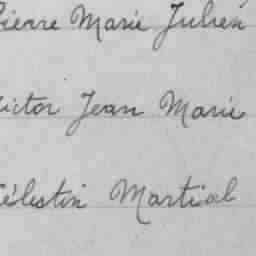 Pierre Marie Julien
Victor Jean Marie
Célestin Martial